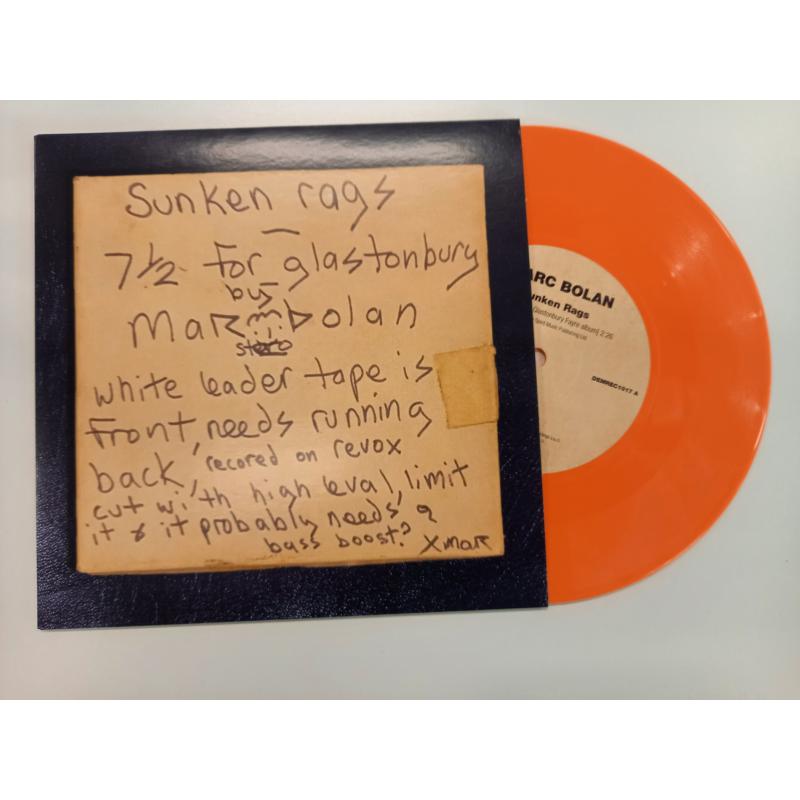 Sunken rags
7½ for glastonbury
by
Marc bolan
stereo
white leader tape is
front, needs running
back, recored on revox
cut with high leval, limit
it & it probably needs a
bass boost? X marc
ARC BOLAN
unken Rags
Glastonbury Fayre album] 2:26
Spirit Music Publishing Ltd
DEMREC1017 A